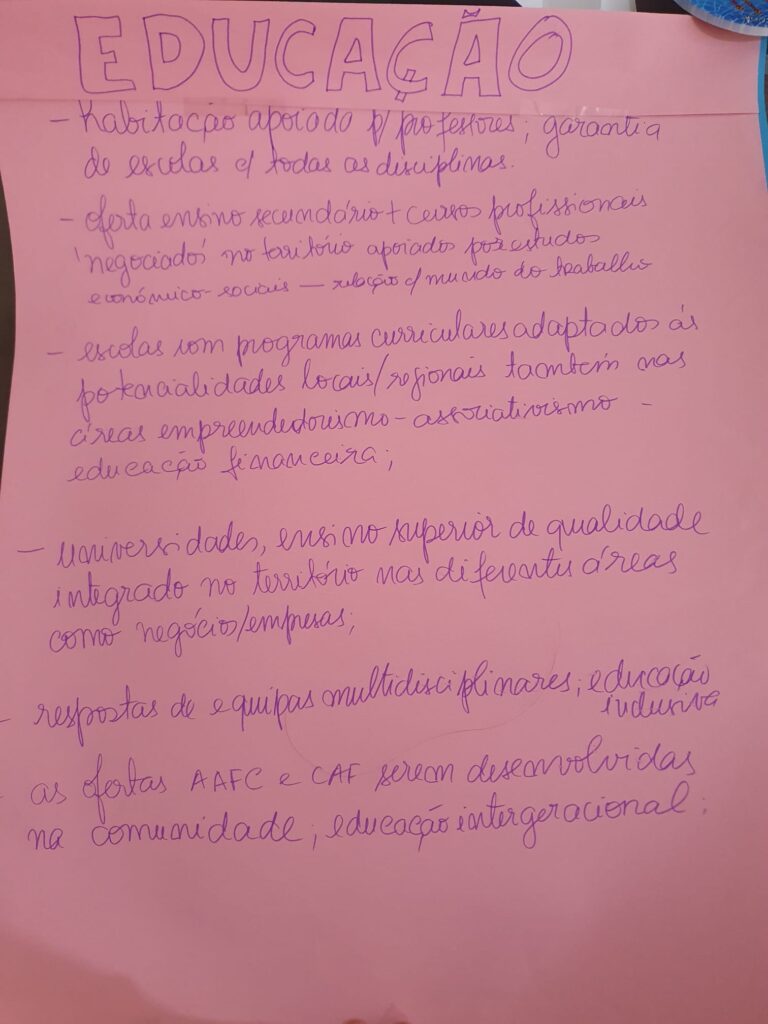 EDUCAÇÃO
- Habitação apoiada p/ professores; garantia
de escolas c/ todas as disciplinas.
- oferta ensino secundário + cursos profissionais
'negociados' no território apoiados por estudos
económico-sociais — relação c/ mundo do trabalho
- escolas com programas curriculares adaptados às
potencialidades locais/regionais também nas
áreas empreendedorismo - associativismo -
educação financeira;
- universidades, ensino superior de qualidade
integrado no território nas diferentes áreas
como negócio/empresas;
- respostas de equipas multidisciplinares; educação
inclusiva
- as ofertas AAFC e CAF serem desenvolvidas
na comunidade; educação intergeracional;